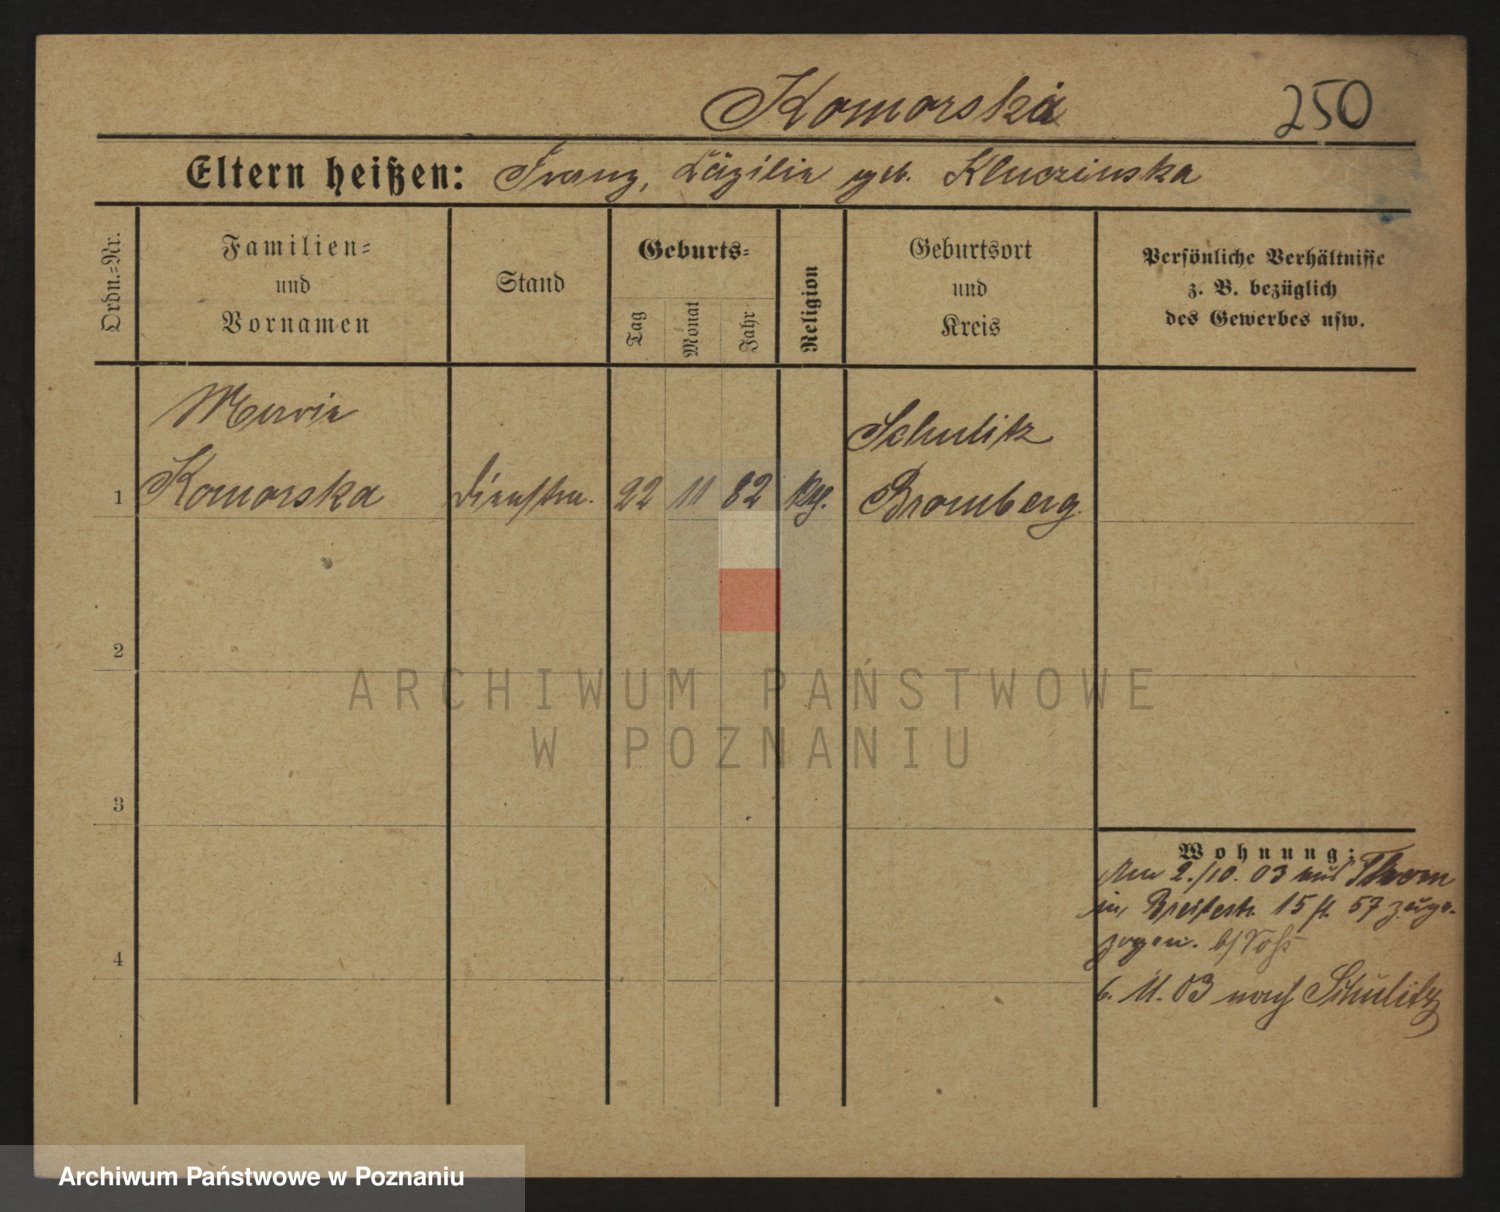 Komorska 250
Eltern heißen: Franz, Cäzilie geb. Kluczinska
Ordn.-Nr.
Familien-
und
Vornamen
Stand
Geburts-
Tag
Monat
Jahr
Religion
Geburtsort
und
Kreis
Persönliche Verhältnisse
z. B. bezüglich
des Gewerbes usw.
Marie
Schulitz
1 Komorska Dienstm. 22 11 82 kg. Bromberg.
2
3
4
Wohnung:
Am 2./10. 03 aus Thorn
in, Breitestr. 15 ft. 57 zuge-
zogen. b/Voß
6. 11. 03 nach Schulitz
ARCHIWUM PAŃSTWOWE
W POZNANIU
Archiwum Państwowe w Poznaniu